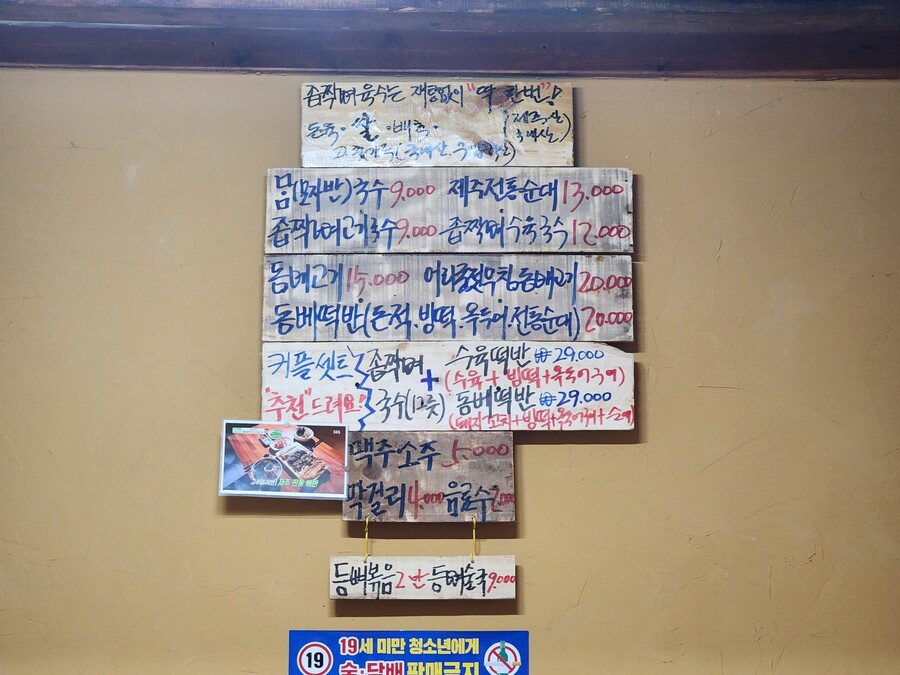 좁짝뼈육수는 재탕없이 "역 한번"!
돈육·쌀·배추· (제주산/국내산)
고춧가루(국내산.
몸(모자반)국수 9.000 제주전통순대 13.000
좁짝뼈고기국수 9.000 좁짝뼈수육국수 12.000
돔베고기 15.000 돔베고기 20.000
돔베떡반(돈적.빙떡.옥돔어.전통순대) 20.000
커플셋트 좁짝뼈 + 수육떡반 ₩29.000
(수육+빙떡+옥돔어구이)
"추천"드려요! 국수(1그릇) 돔베떡반 ₩29.000
맥주 소주 5.000
막걸리 4.000 음료수 2.000
등뼈볶음 2만 등뼈술국 9.000
SBS
제주 전통 백반
19세 미만 청소년에게
19
술·담배 판매금지